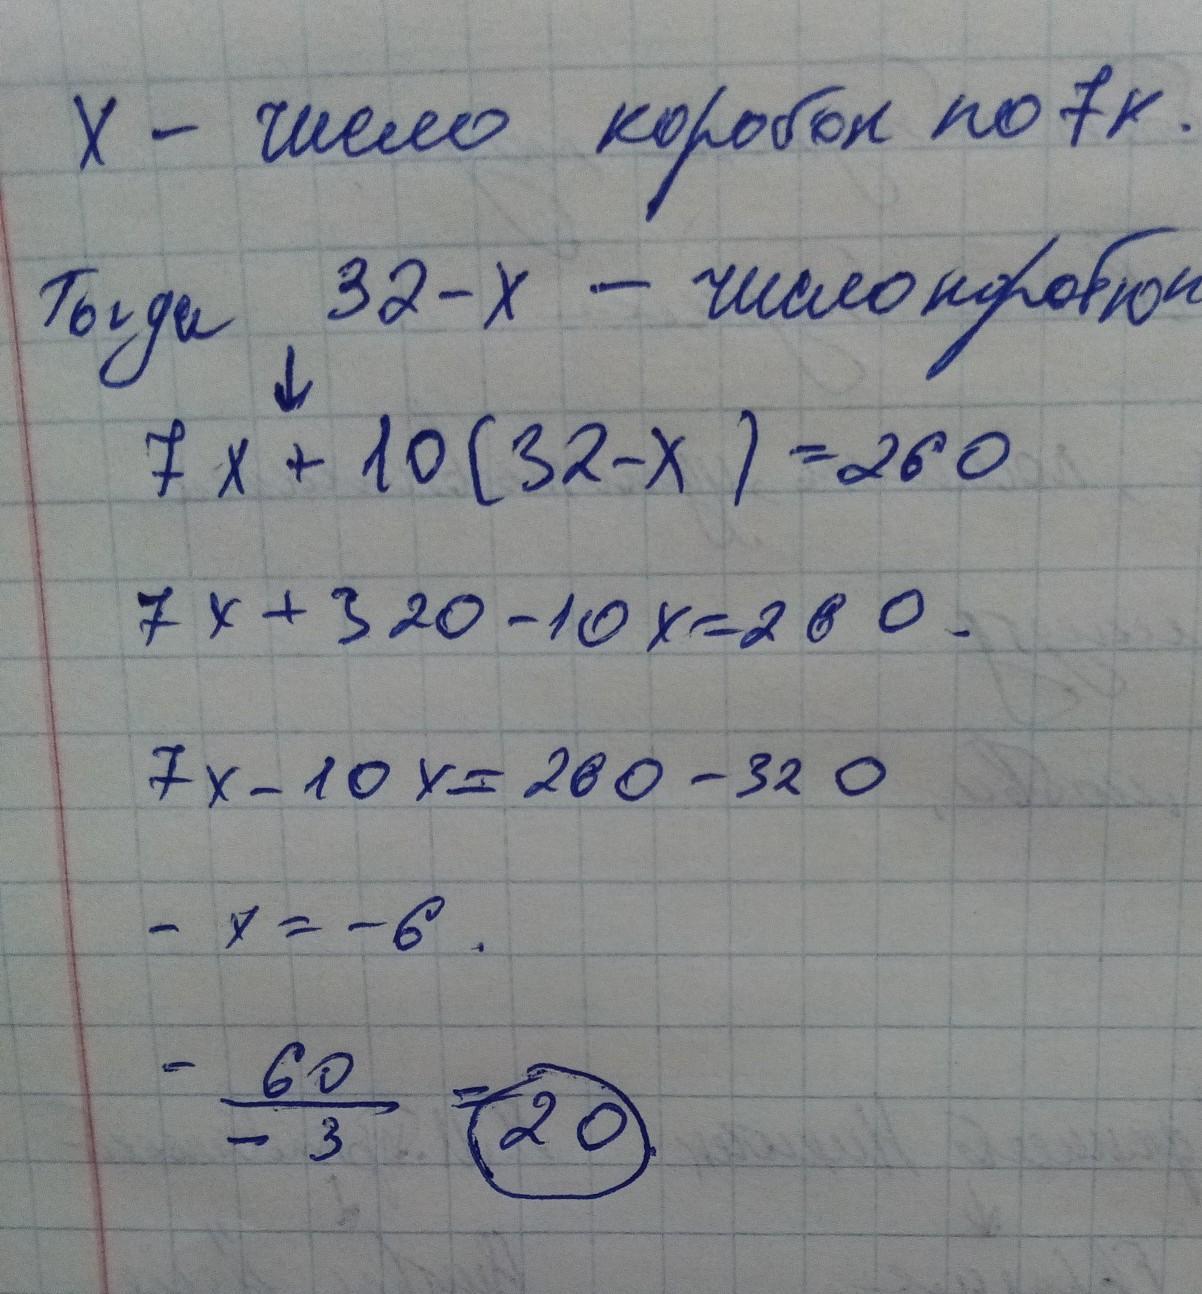 X - число коробок по 7к.
Тогда 32-x - число коробок
↓
7x + 10(32-x) = 260
7x + 320 - 10x = 260.
7x - 10x = 260 - 320
- x = -6.
- 60 / - 3 = 20